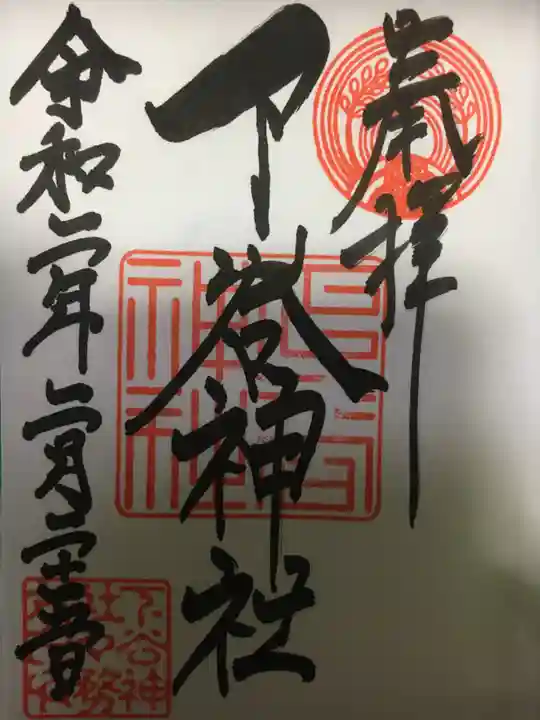 奉拝
下谷神社
令和二年二月二十三日
下谷神